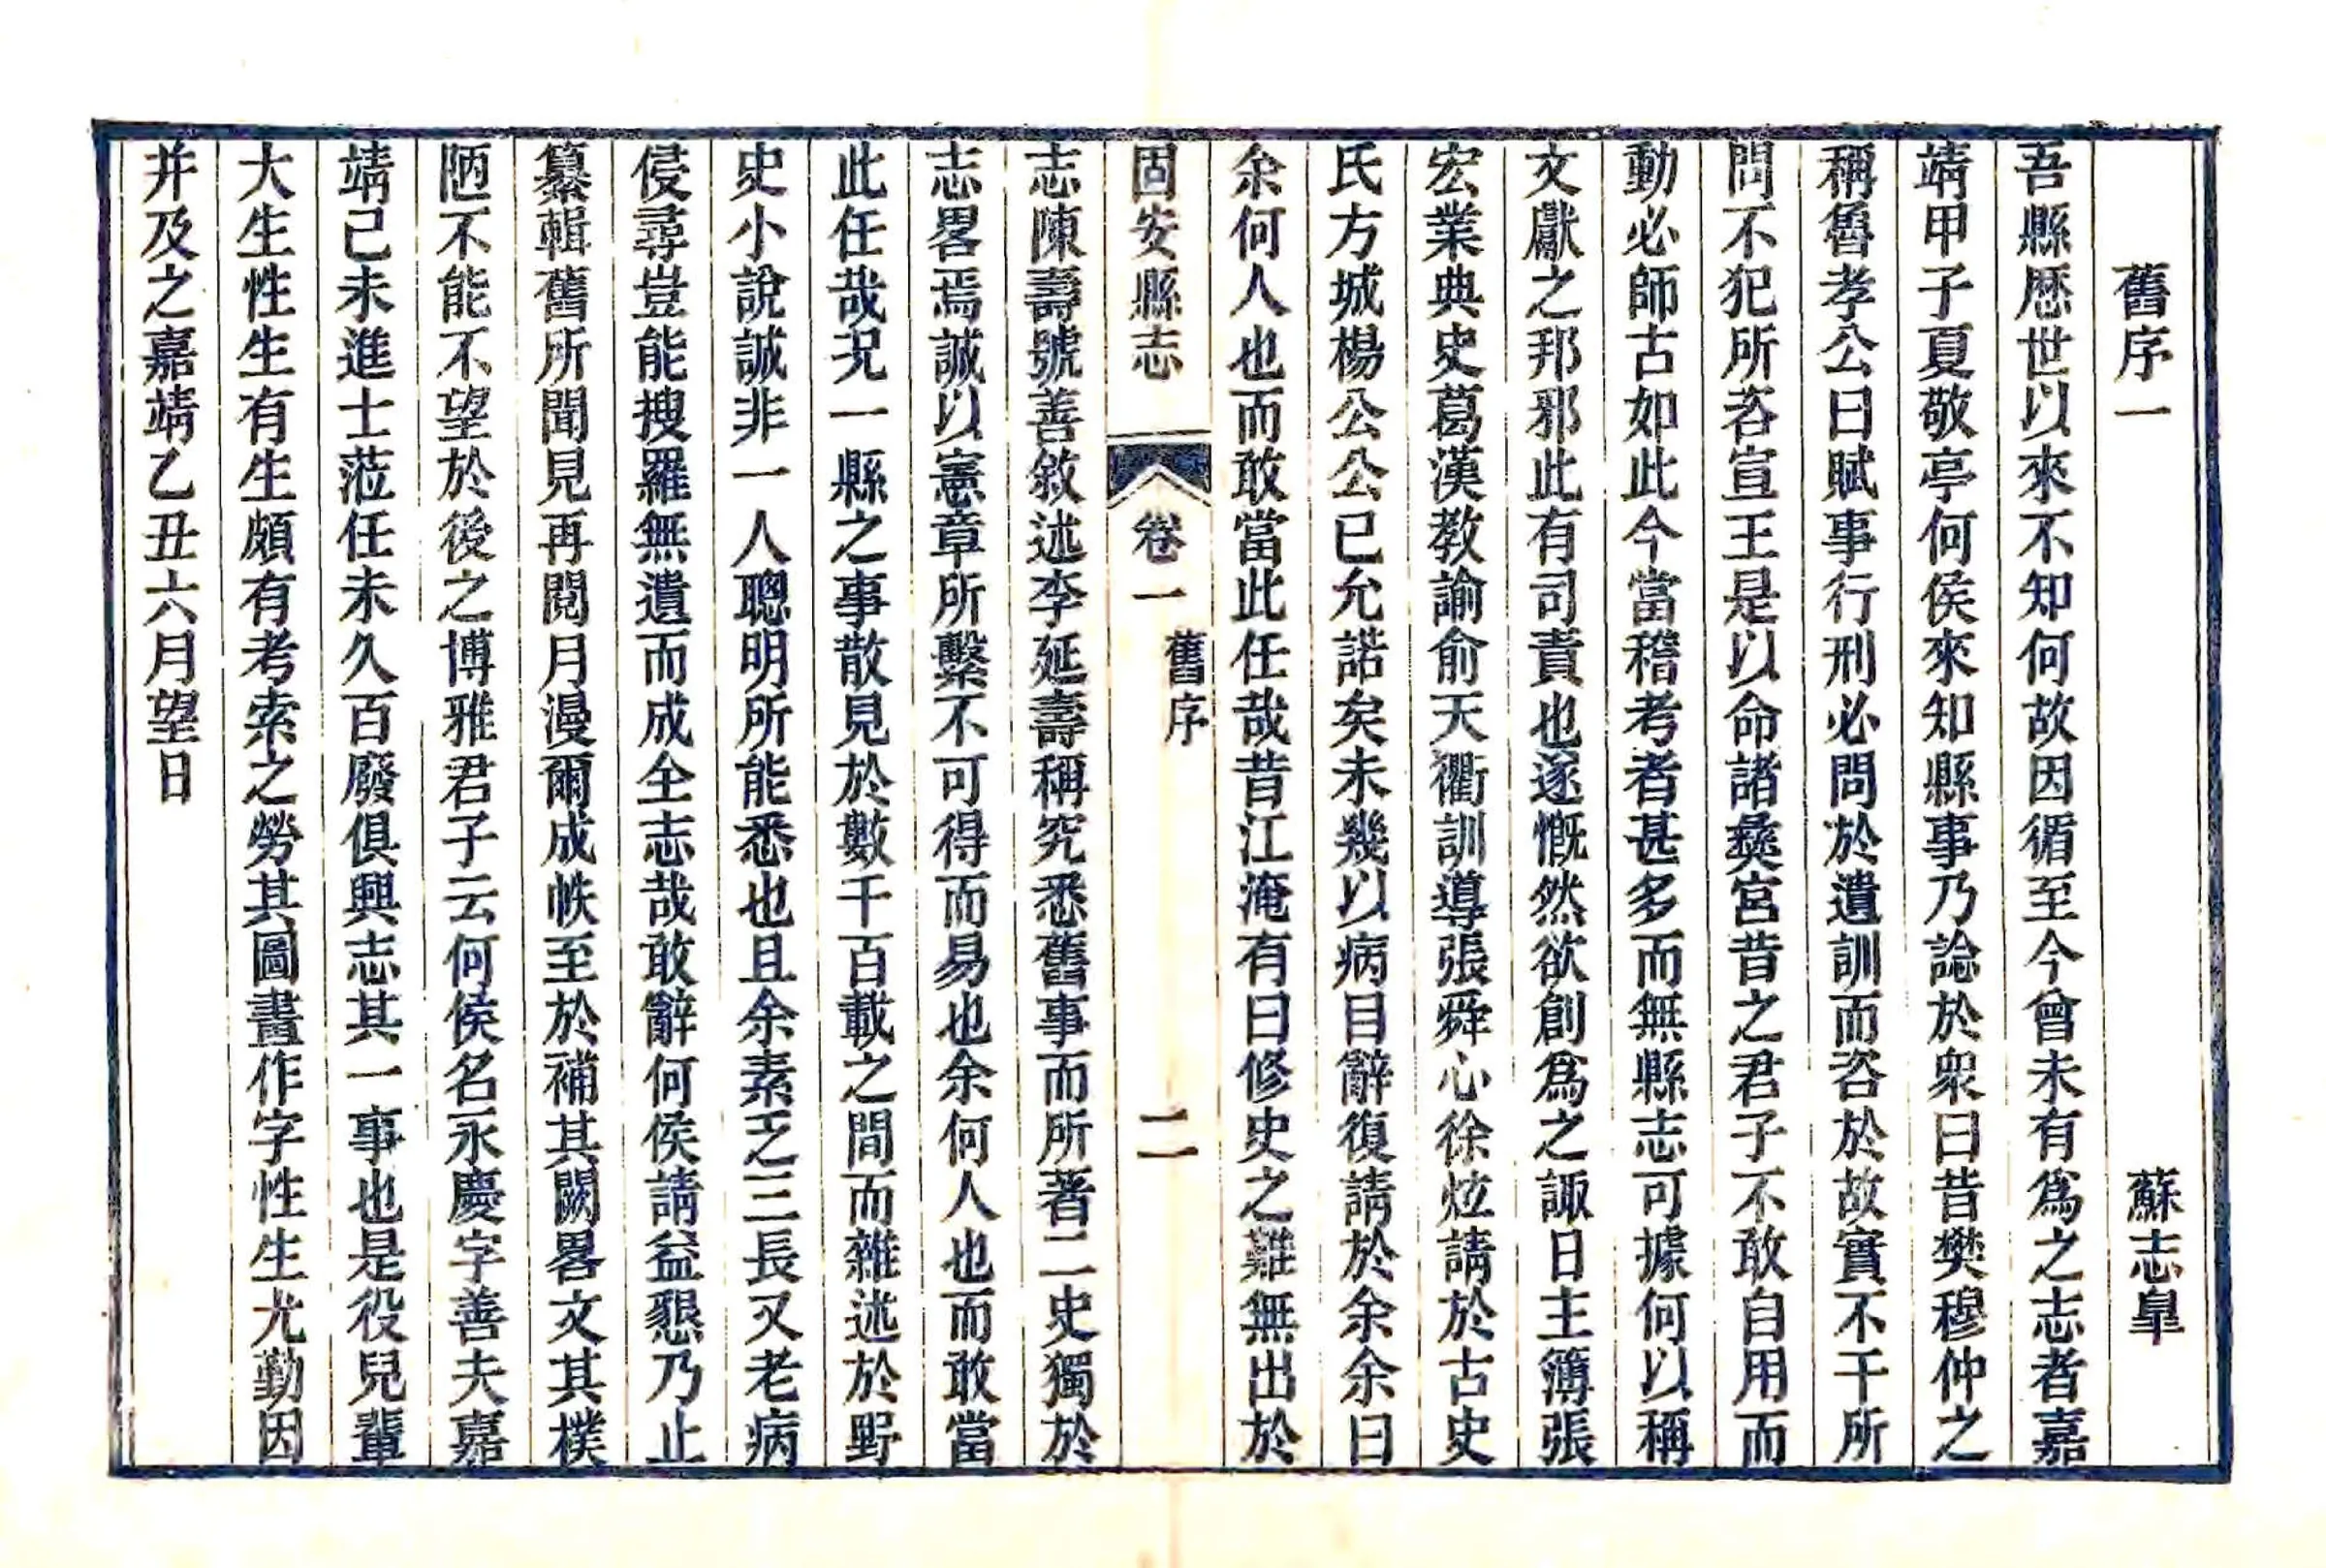 舊序一　蘇志臯
吾縣厯世以來不知何故因循至今曾未有爲之志者嘉
靖甲子夏敬亭何侯來知縣事乃論於衆曰昔樊穆仲之
稱魯孝公曰賦事行刑必問於遺訓而咨於故實不干所
問不犯所咨宣王是以命諸彞宮昔之君子不敢自用而
動必師古如此今當稽考者甚多而無縣志可據何以稱
文獻之邦邪此有司責也遂慨然欲創爲之諏日主簿張
宏業典史葛漢教諭俞天衢訓導張舜心徐炫請於古史
氏方城楊公公已允諾矣未幾以病目辭復請於余余曰
余何人也而敢當此任哉昔江淹有曰修史之難無出於
固安縣志　卷一　舊序　二
志陳壽號善敘述李延壽稱究悉舊事而所著二史獨於
志畧焉誠以憲章所繫不可得而易也余何人也而敢當
此任哉況一縣之事散見於數千百載之間而雜述於野
史小說誠非一人聰明所能悉也且余素乏三長又老病
侵尋豈能搜羅無遺而成全志哉敢辭何侯請益懇乃止
纂輯舊所聞見再閱月漫爾成帙至於補其闕畧文其樸
陋不能不望於後之博雅君子云何侯名永慶字善夫嘉
靖己未進士蒞任未久百廢俱興志其一事也是役兒輩
大生性生有生頗有考索之勞其圖畫作字性生尤勤因
并及之嘉靖乙丑六月望日